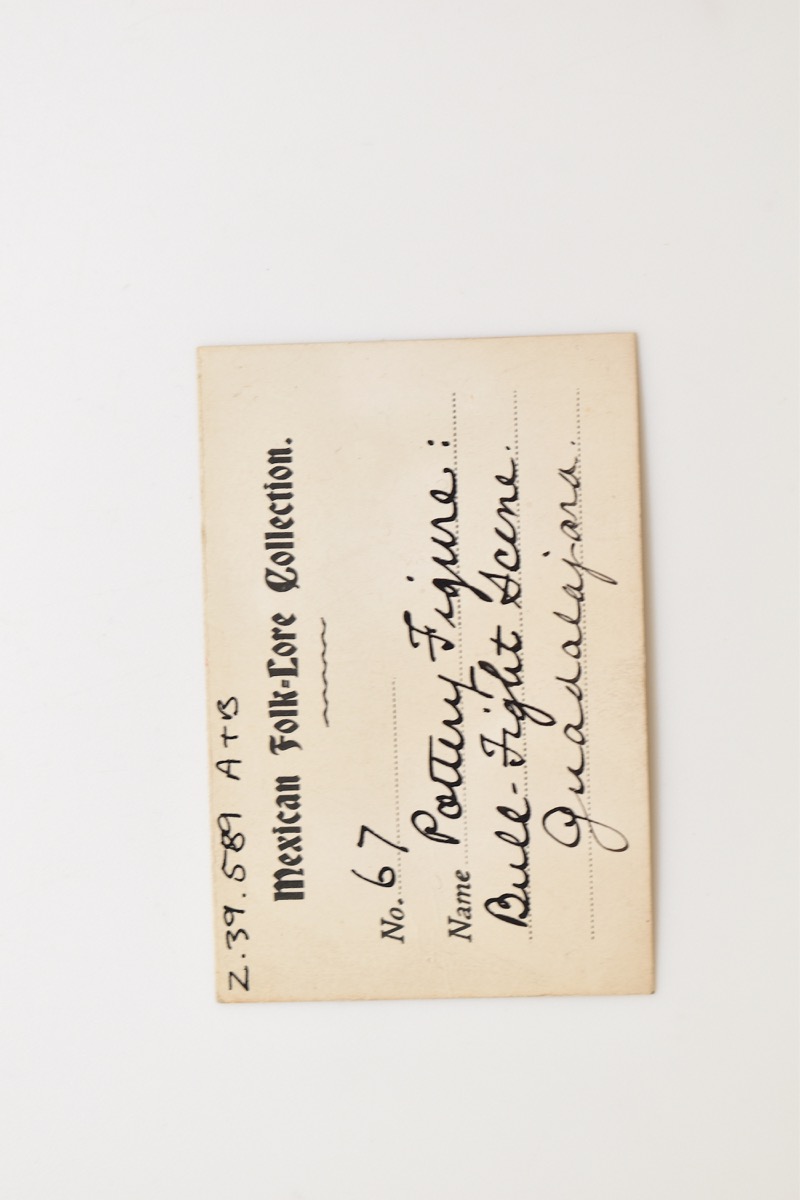 Z.39.589 A+B
Mexican Folk-Lore Collection.
No. 67
Name Pottery Figure:
Bull-Fight Scene.
Guadalajara.